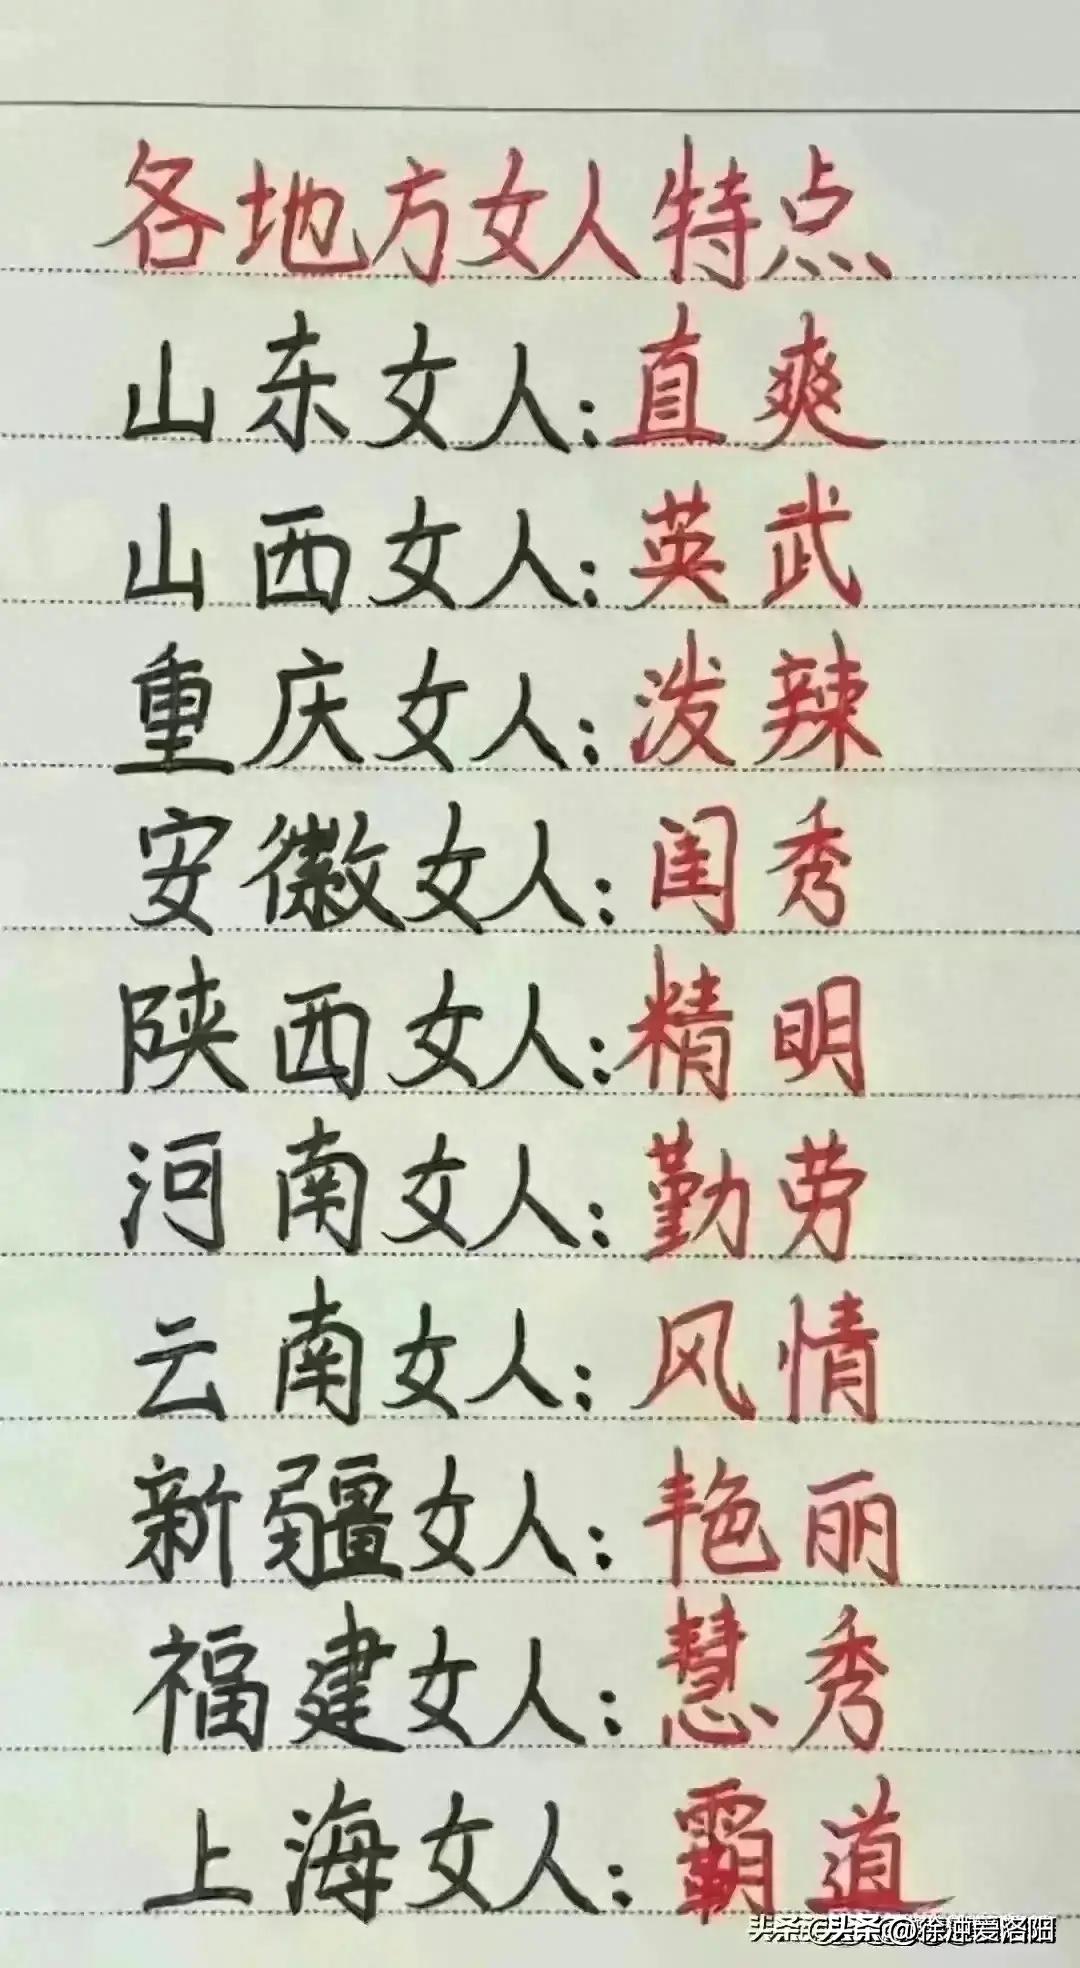 各地方女人特点
山东女人:直爽
山西女人:英武
重庆女人:泼辣
安徽女人:闺秀
陕西女人:精明
河南女人:勤劳
云南女人:风情
新疆女人:艳丽
福建女人:慧秀
上海女人:霸道
头条 @徐 爱洛阳